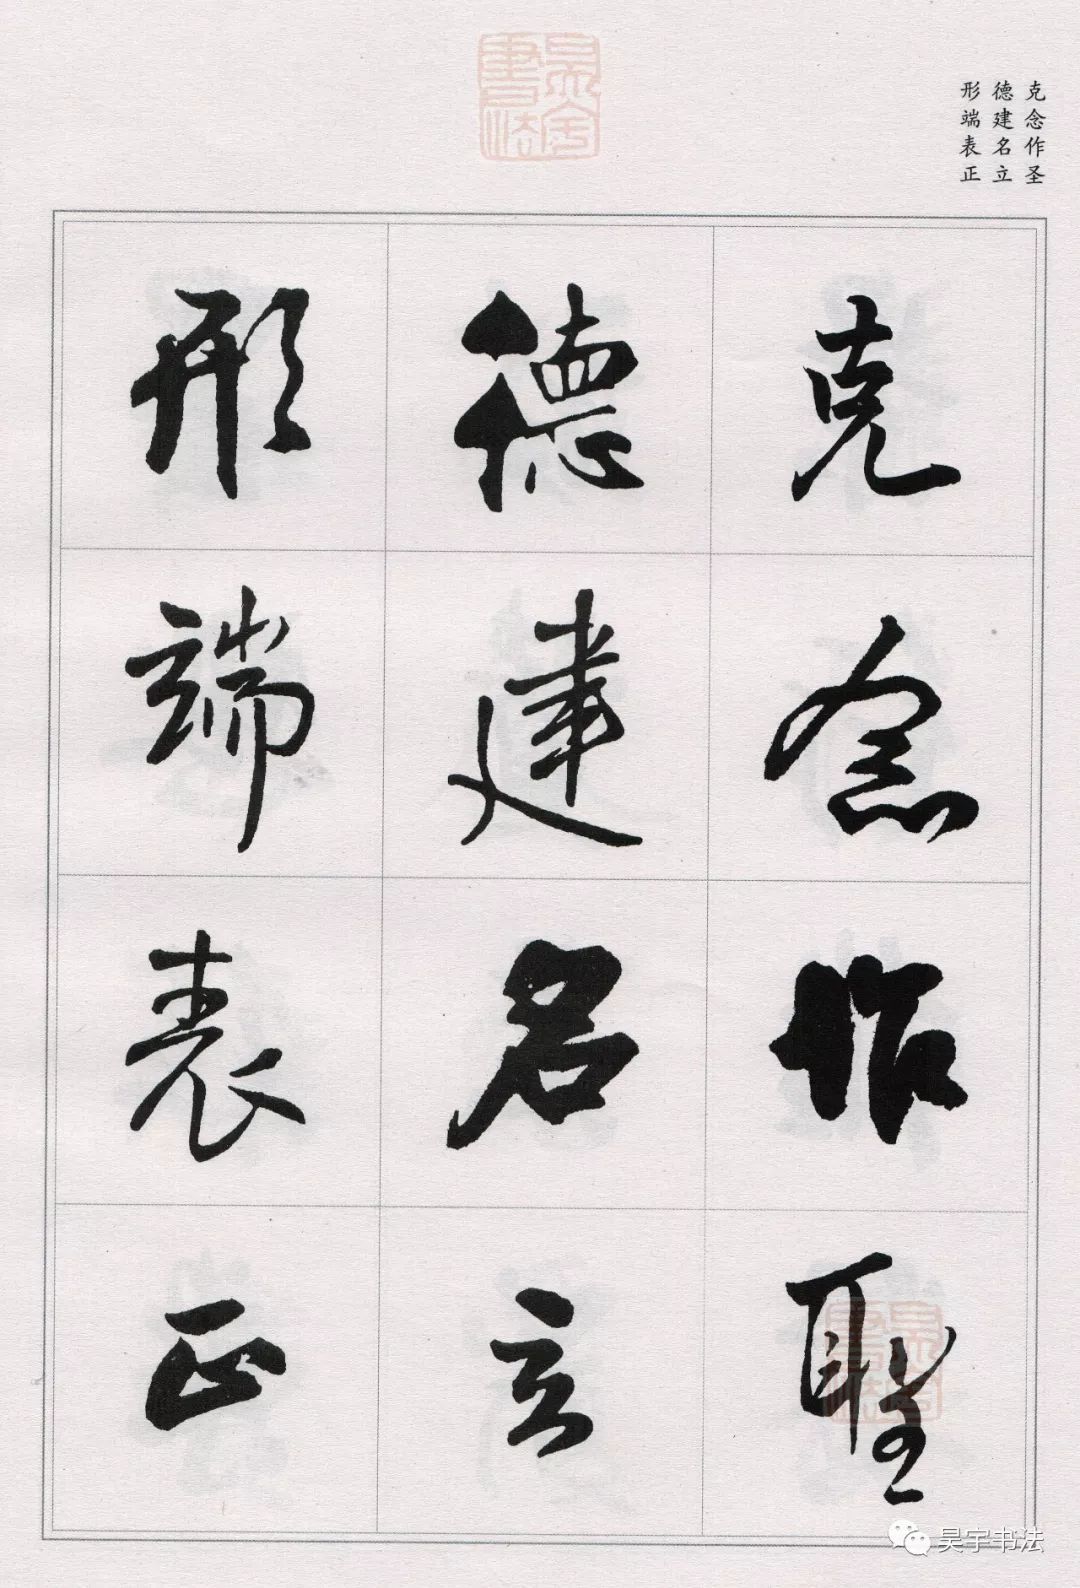 克念作圣
德建名立
形端表正
克念作聖
德建名立
形端表正
昊宇书法